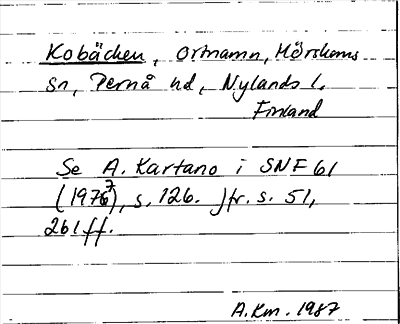 Kobäcken, ortnamn, Mörskoms
sn, Pernå hd, Nylands l.
Finland
Se A. Kartano i SNF 61
(1976), s. 126. Jfr. s. 51,
261 ff.
A.Km. 1987